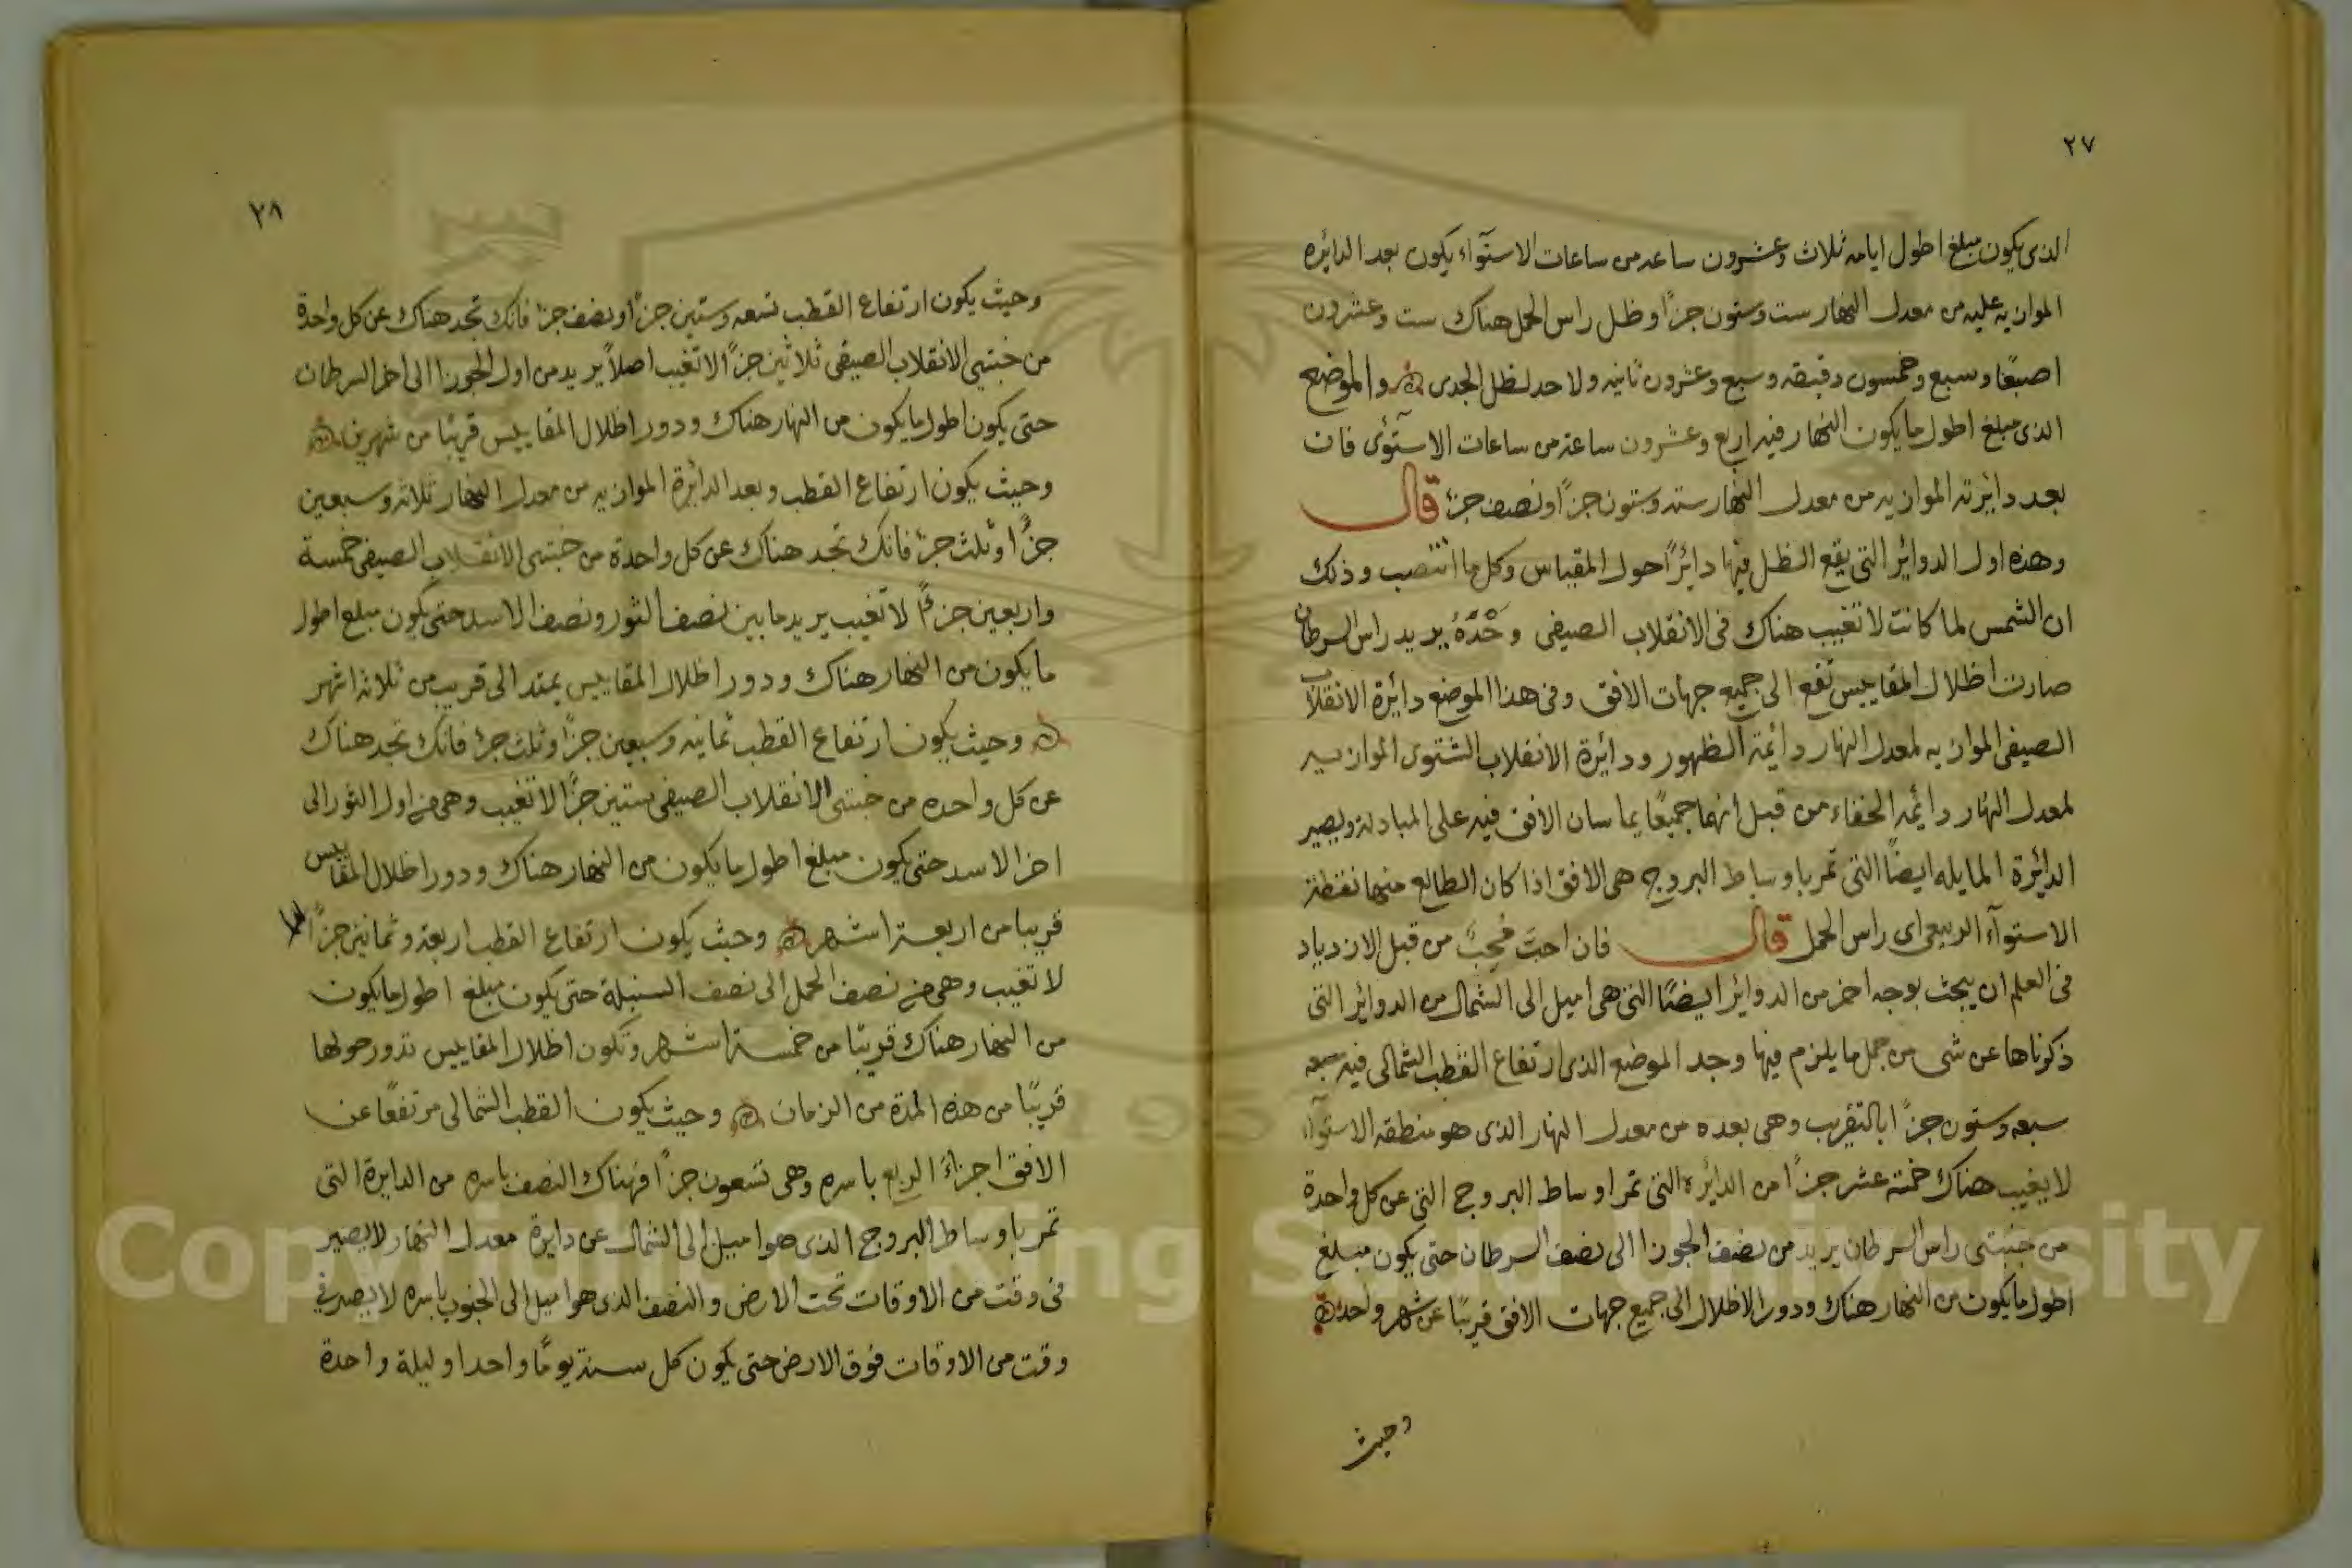 ٢٧
الذى يكون مبلغ اطول ايامه ثلاث وعشرون ساعه من ساعات الاستوآء يكون بعد الدائره
الموازيه عليه من معدل النهار ست وستون جزًا وظل راس الحمل هناك ست وعشرون
اصبعًا وسبع وخمسون دقيقه وسبع وعشرون ثانيه ولا حد لظل الجدى والموضع
الذى مبلغ اطول ما يكون النهار فيه اربع وعشرون ساعة من ساعات الاستوآى فان
بعد دائرته الموازيه من معدل النهار سته وستون جزًا ونصف جزء قال
وهذه اول الدوائر التى يقع الظل فيها دائرًا حول المقياس وكل ما انتصب وذلك
ان الشمس لما كانت لا تغيب هناك فى الانقلاب الصيفى وحْدَهُ يريد راس السرطان
صارت اظلال المقاييس تقع الى جميع جهات الافق وفى هذا الموضع دائرة الانقلاب
الصيفى الموازيه لمعدل النهار دائمة الظهور ودائرة الانقلاب الشتوى الموازيه
لمعدل النهار دائمه الخفاء من قبل انهما جميعًا يماسان الافق فيه على المبادلة ويصير
الدائرة المايله ايضًا التى تمر باوساط البروج هى الافق اذا كان الطالع منها نقطة
الاستوآء الربيعى اى راس الحمل قال فان احبَّ مُحِبٌ من قبل الازدياد
فى العلم ان يبحث بوجه اخر من الدوائر ايضًا التى هى اميل الى الشمال من الدوائر التى
ذكرناها عن شى من جمل ما يلزم فيها وجد الموضع الذى ارتفاع القطب الشمالى فيه سبعه
سبعه وستون جزًا بالتقريب وهى بعده من معدل النهار الذى هو منطقه الاستوآء
لا يغيب هناك خمسة عشر جزًا من الدائره التى تمر اوساط البروج التى عن كل واحدة
من جنبتى راس السرطان يريد من نصف الجوزا الى نصف السرطان حتى يكون مبلغ
اطول ما يكون من النهار هناك ودور الاظلال الى جميع جهات الافق قريبًا عن شهر واحد
وحيث
٢٨
وحيث يكون ارتفاع القطب تسعه وستين جزءًا ونصف جزء فانك تجد هناك عن كل واحدة
من جنبتى الانقلاب الصيفى ثلاثين جزًا لا تغيب اصلاً يريد من اول الجوزا الى اخر السرطان
حتى يكون اطول ما يكون من النهار هناك ودور اظلال المقاييس قريبًا من شهرين
وحيث يكون ارتفاع القطب وبعد الدائرة الموازيه من معدل النهار ثلاثه وسبعين
جزًا وثلث جزء فانك تجد هناك عن كل واحدة من جنبتى الانقلاب الصيفى خمسة
واربعين جزءًا لا تغيب يريد ما بين نصف الثور ونصف الاسد حتى يكون مبلغ اطول
ما يكون من النهار هناك ودور اظلال المقاييس يمتد الى قريب من ثلاثة اشهر
وحيث يكون ارتفاع القطب ثمانيه وسبعين جزًا وثلث جزء فانك تجد هناك
عن كل واحده من جنبتى الانقلاب الصيفى ستين جزًا لا تغيب وهى من اول الثور الى
اخر الاسد حتى يكون مبلغ اطول ما يكون من النهار هناك ودور اظلال المقاييس
قريبا من اربعة اشهر وحيث يكون ارتفاع القطب اربعة وثمانين جزًا
لا تغيب وهى من نصف الحمل الى نصف السنبلة حتى يكون مبلغ اطول ما يكون
من النهار هناك قريبًا من خمسة اشهر وتكون اظلال المقاييس تدور حولها
قريبًا من هذه المدة من الزمان وحيث يكون القطب الشمالى مرتفعًا عن
الافق اجزاءَ الربع باسره وهى تسعون جزًا فهناك النصف باسره من الدايرة التى
تمر باوساط البروج الذى هو اميل الى الشمال عن دايرة معدل النهار لا يصير
فى وقت من الاوقات تحت الارض والنصف الذى هو اميل الى الجنوب باسره لا يصير فى
وقت من الاوقات فوق الارض حتى يكون كل سنة يومًا واحدا وليلة واحدة
Copyright © King Saud University